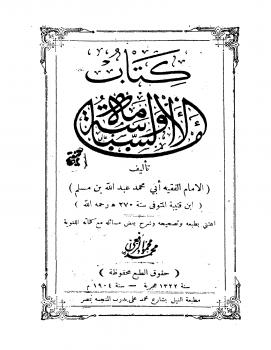 كتاب
الامامة والسياسة
تأليف
( الامام الفقيه أبي محمد عبد الله بن مسلم )
( ابن قتيبة المتوفى سنة ٢٧٠ ه رحمه الله )
اعتنى بطبعه وتصحيحه وشرح بعض مسائله مع كلماته اللغوية
محمد محمود الرافعي
( حقوق الطبع محفوظة )
سنة ١٣٢٢ هجرية — سنة ١٩٠٤ م
مطبعة النيل بشارع محمد علي بدرب المنجمه بمصر